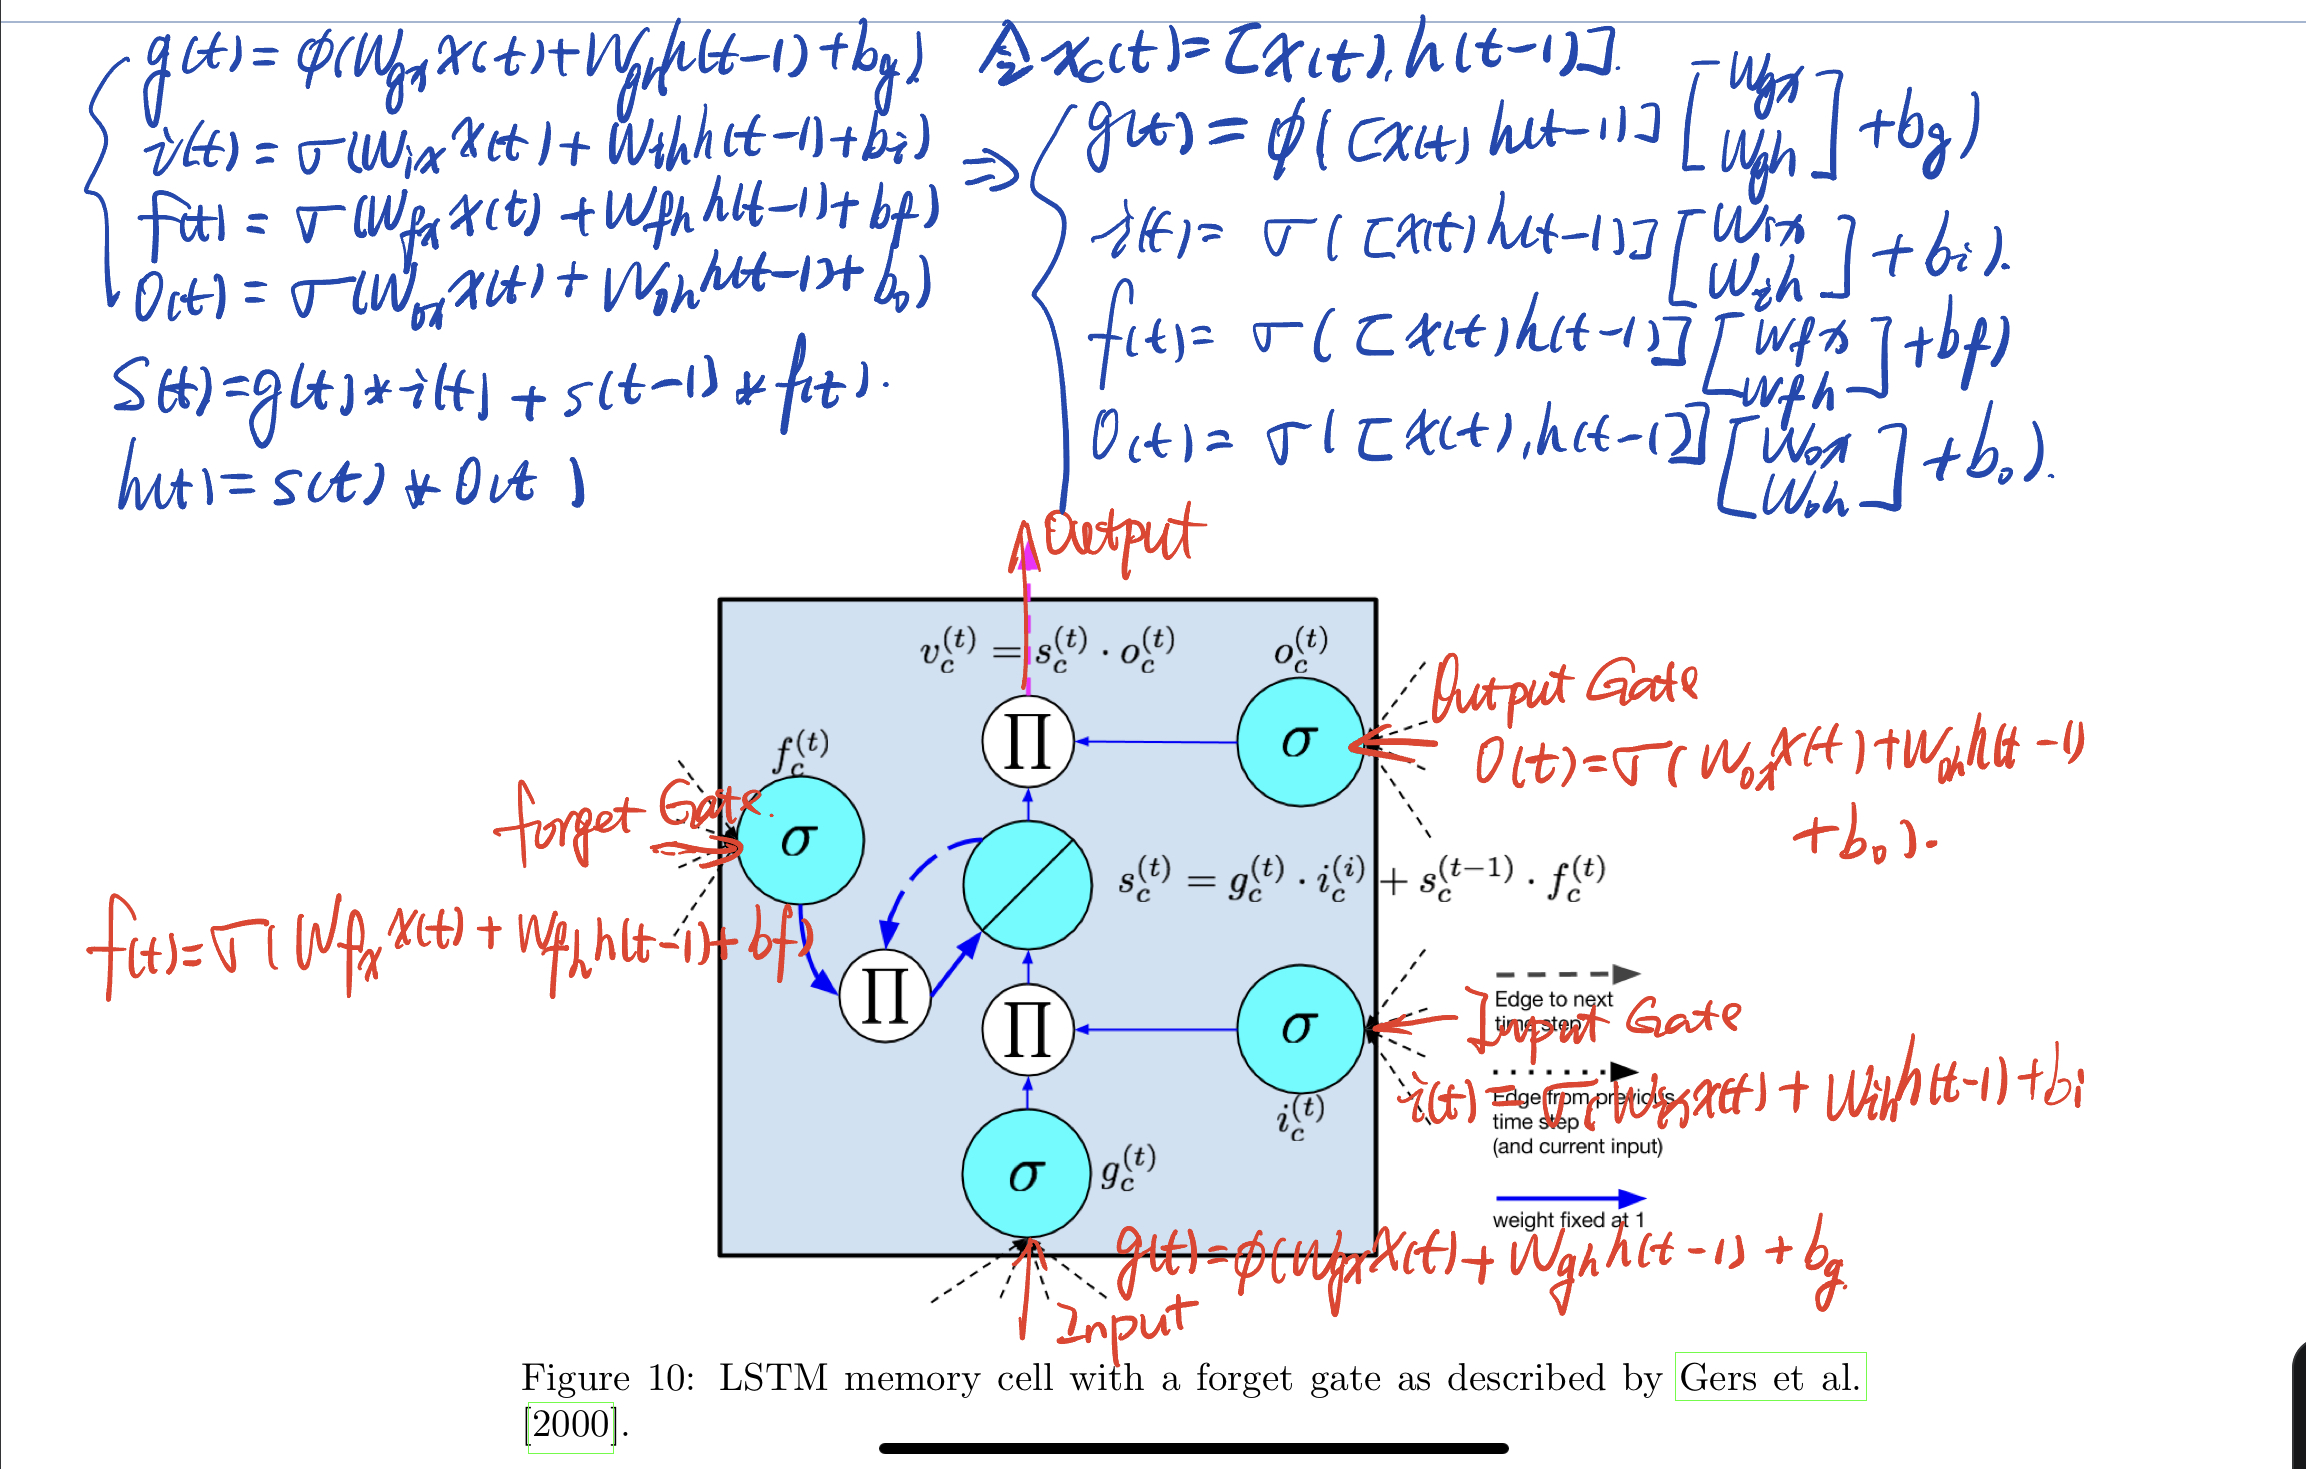 g(t) = ϕ(W_gx x(t) + W_gh h(t-1) + b_g) 令 x_c(t) = [x(t), h(t-1)].
i(t) = σ(W_ix x(t) + W_ih h(t-1) + b_i)
f(t) = σ(W_fx x(t) + W_fh h(t-1) + b_f)
o(t) = σ(W_ox x(t) + W_oh h(t-1) + b_o)
s(t) = g(t) * i(t) + s(t-1) * f(t).
h(t) = s(t) * o(t)
⇒
g(t) = ϕ([x(t) h(t-1)] [W_gx W_gh] + b_g)
i(t) = σ([x(t) h(t-1)] [W_ix W_ih] + b_i).
f(t) = σ([x(t) h(t-1)] [W_fx W_fh] + b_f)
o(t) = σ([x(t), h(t-1)] [W_ox W_oh] + b_o).
Output
v_c^(t) = s_c^(t) · o_c^(t)
o_c^(t)
Output Gate
σ
∏
o(t) = σ(W_ox x(t) + W_oh h(t-1)
+ b_o).
f_c^(t)
forget Gate.
σ
s_c^(t) = g_c^(t) · i_c^(i) + s_c^(t-1) · f_c^(t)
f(t) = σ(W_fx x(t) + W_fh h(t-1) + b_f)
∏
∏
σ
Edge to next
time step
Input Gate
i(t) = σ(W_ix x(t) + W_ih h(t-1) + b_i
Edge from previous
time step
(and current input)
i_c^(t)
σ
g_c^(t)
weight fixed at 1
g(t) = ϕ(W_gx x(t) + W_gh h(t-1) + b_g.
Input
Figure 10: LSTM memory cell with a forget gate as described by Gers et al.
[2000].